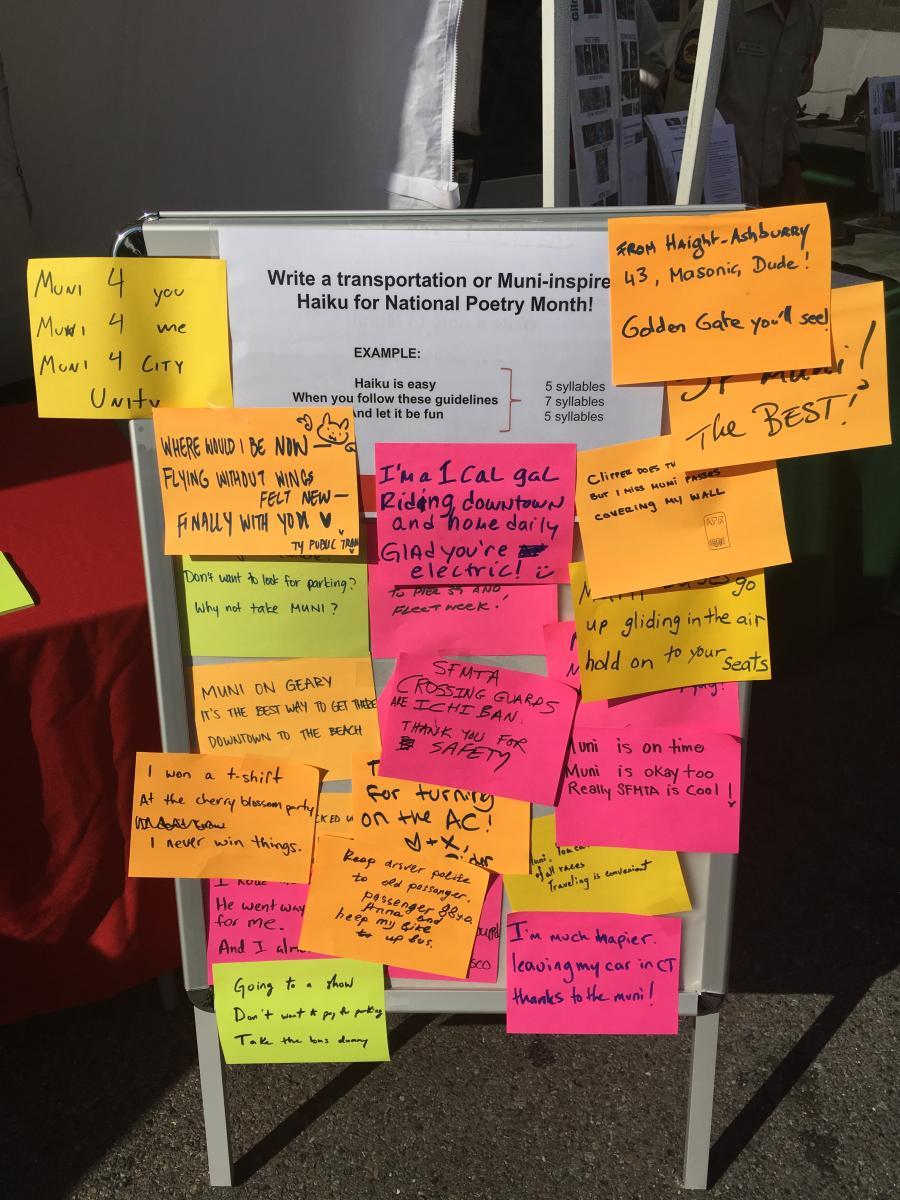 Write a transportation or Muni-inspire
Haiku for National Poetry Month!
EXAMPLE:
Haiku is easy
When you follow these guidelines
And let it be fun
5 syllables
7 syllables
5 syllables
MUNI 4 you
MUNI 4 me
MUNI 4 CITY
UNITY
FROM HAIGHT-ASHBURRY
43, MASONIC, DUDE!
Golden Gate you'll see!
SF MUNI!
The BEST!
WHERE WOULD I BE NOW
FLYING WITHOUT WINGS
FELT NEW—
FINALLY WITH YOU ♥
TY PUBLIC TRAN
I'm a 1 Cal gal
Riding downtown
and home daily
Glad you're
electric!
CLIPPER DOES
BUT I MISS MUNI PASSES
COVERING MY WALL
APR
Don't want to look for parking?
Why not take MUNI?
TO PIER 39 AND,
FLEET WEEK!
go
up gliding in the air
hold on to your seats
MUNI ON GEARY
IT'S THE BEST WAY TO GET THERE
DOWNTOWN TO THE BEACH
SFMTA
CROSSING GUARDS
ARE ICHIBAN
THANK YOU FOR
SAFETY
Muni is on time
Muni is okay too
Really SFMTA is cool!
I won a t-shirt
At the cherry blossom party
I never win things.
CKED
for turning
on the AC!
♡ + X,
Keep driver polite
to old passanger.
passenger 98 yo.
Anna and
keep my bike
up bus.
of all races
Traveling is convenient
He went way
for me.
And I
SCO
I'm much hapier.
leaving my car in CT
thanks to the muni!
Going to a show
Don't want to pay for parking
Take the bus dummy